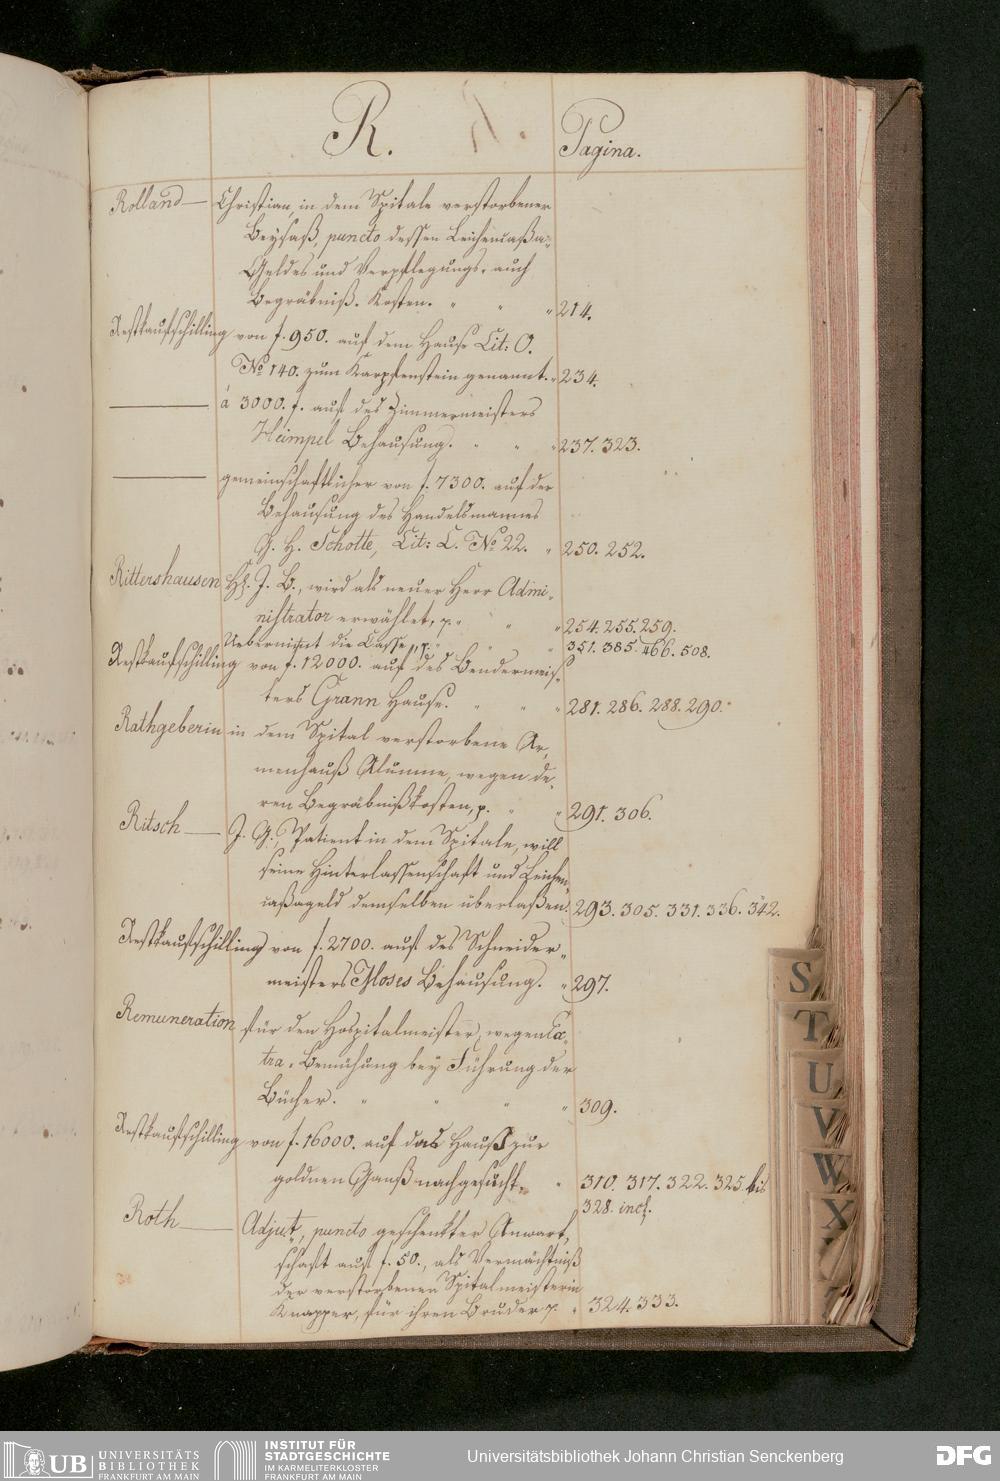 R.
Pagina.
Rolland — Christian, in dem Spitale verstorbener
Beysaß, puncto dessen Leichencaßa-
Geldes und Verpflegungs- auch
Begräbniß-Kosten. " " " 214.
Restkaufschilling von f. 950. auf dem Hause Lit: O.
No 140. zum Karpfenstein genannt. " 234.
— à 3000. f. auf des Zimmermeisters
Heimpel Behausung. " " " 237. 323.
— gemeinschaftlicher von f. 7300. auf der
Behausung des Handelsmannes
G. H. Schotte, Lit: L. No 22. " 250. 252.
Rittershausen H. J. B., wird als neuer Herr Admi-
nistrator erwählet, p. " " " 254. 255. 259.
Uebernimt die Cassa, p. " " " 351. 385. 466. 508.
Restkaufschilling von f. 12000. auf des Bendermeis-
ters Grann Hause. " " " 281. 286. 288. 290.
Rathgeberin in dem Spital verstorbene Ar-
menhauß Alumne, wegen de-
ren Begräbnißkosten, p. " " 291. 306.
Ritsch — J. G., Patient in dem Spitale, will
seine Hinterlassenschaft und Leichen-
caßageld demselben überlaßen. 293. 305. 331. 336. 342.
Restkaufschilling von f. 2700. auf des Schneider-
meisters Moses Behausung. " 297.
Remuneration für den Hospitalmeister, wegen Ex-
tra-Bemühung bey Führung der
Bücher. " " " " 309.
Restkaufschilling von f. 16000. auf das Hauß zur
goldnen Ganß nachgesucht. " 310. 317. 322. 325. bis
328. incl.
Roth — Adjut., puncto geschenkter Anwart-
schaft auf f. 50., als Vermächtniß
der verstorbenen Spitalmeisterin
Knapper, für ihren Bruder p. " 324. 333.
S
T
U
V
W
X
UB UNIVERSITÄTS
BIBLIOTHEK
FRANKFURT AM MAIN
INSTITUT FÜR
STADTGESCHICHTE
IM KARMELITERKLOSTER
FRANKFURT AM MAIN
Universitätsbibliothek Johann Christian Senckenberg
DFG